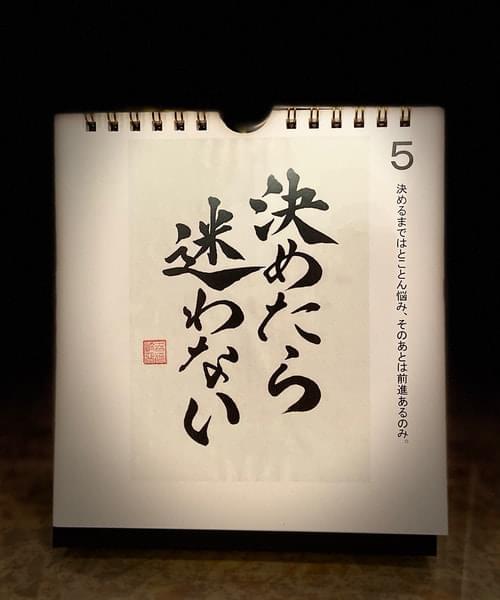 5
決めるまではとことん悩み、そのあとは前進あるのみ。
決めたら
迷わない